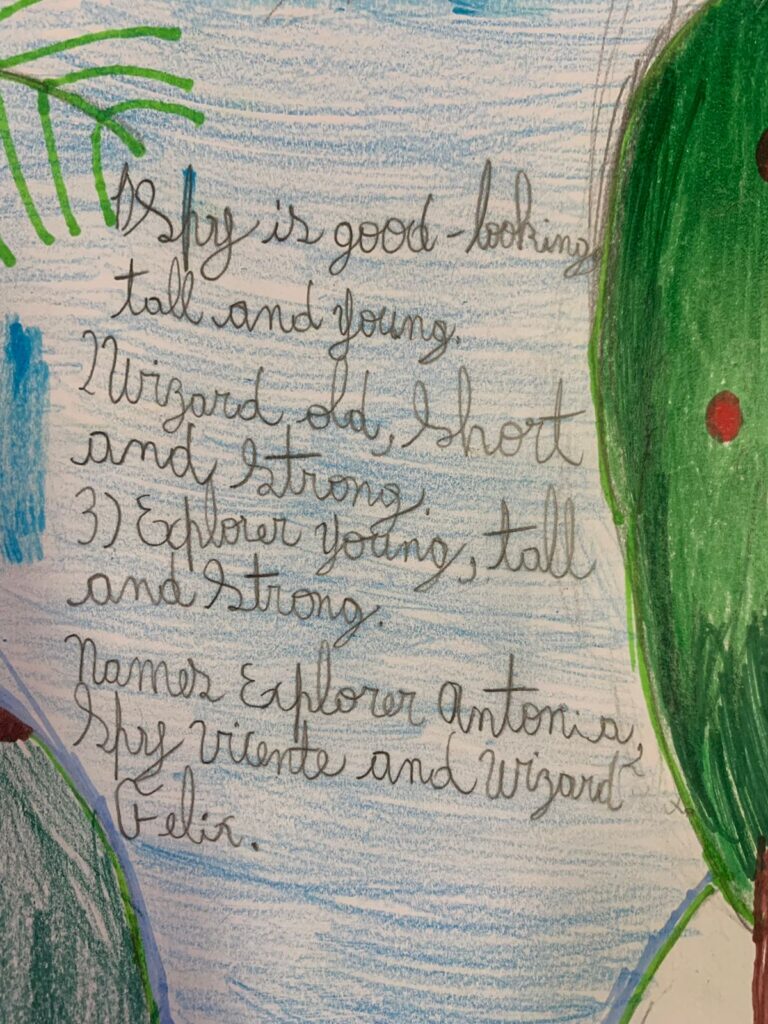 1) Spy is good-looking,
tall and young.
2) Wizard, old, short
and, strong.
3) Explorer young, tall
and strong.
Names Explorer Antonia,
Spy Vicente and Wizard
Felix.